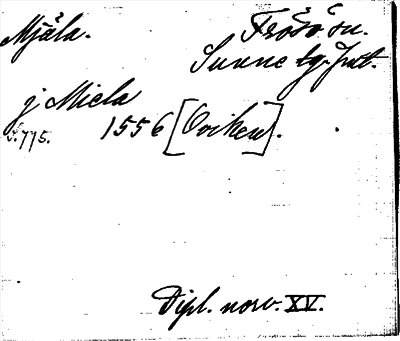 Mjäla. Frösö sn.
Sunne tg. Jmt.
j Miela
s. 775. 1556 [Oviken].
Dipl. norv. XV.